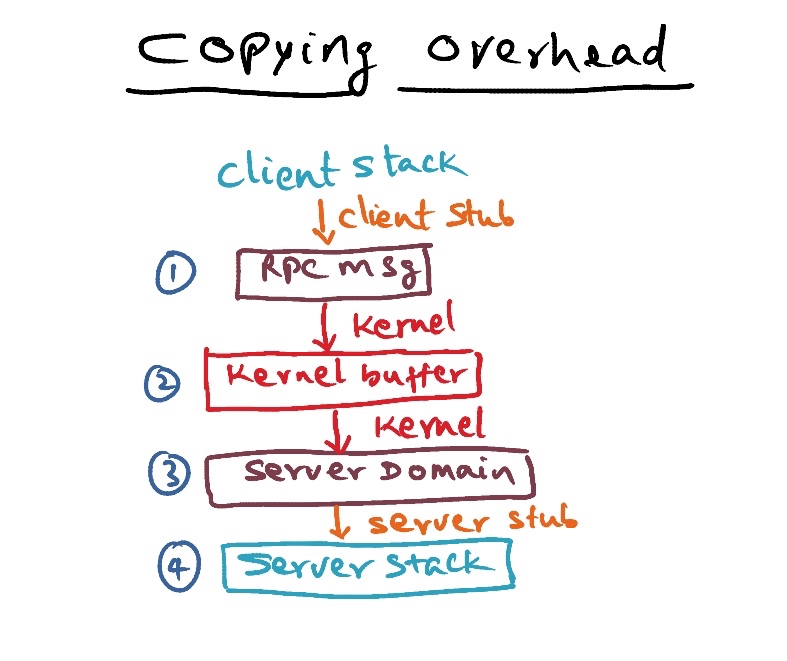 Copying Overhead
client stack
client stub
① RPC msg
kernel
② Kernel buffer
kernel
③ Server Domain
server stub
④ Server stack